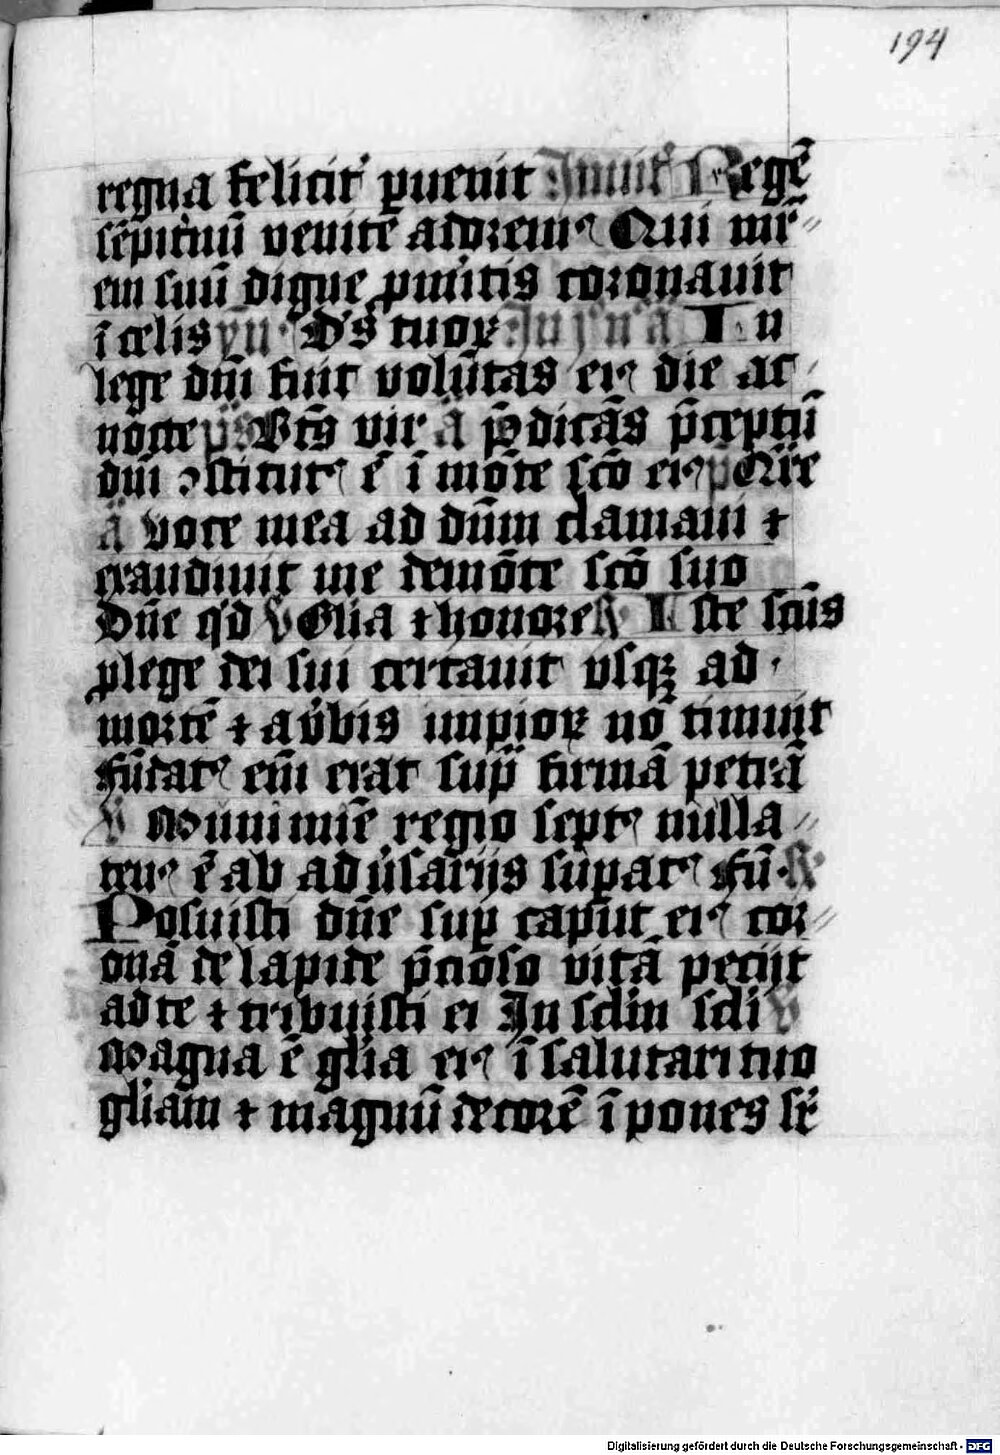 194
regna felicit᷑ ꝑuenit Inuit᷑ Regē
sēpit᷑nū venite adorem⁹ Qui mr̄-
em suū digne ꝓ m̄itis coronauit
ī celis yn̄ Dˢ tuoꝝ In j n̄ ā In
lege dn̄i fuit volūtas ei⁹ die ac
nocte p̄s Bt̄s vir ā p̄dicās p̄ceptū
dn̄i ꝯstitut⁹ ē ī mōte sc̄o ei⁹ p̄ Qūre
ā voce mea ad dn̄m clamaui ⁊
exaudiuit me de mōte sc̄o suo
Dn̄e qͥd v̄ Glīa ⁊ honore R̄ Iste sc̄us
ꝓ lege dei sui certauit vsqꝫ ad
mortē ⁊ a v̄bis impioꝝ nō timuit
fūdat⁹ em̄ erat supͣ firmā petrā
V̄ Munimīe regio sept⁹ nulla-
ten⁹ ē ab adu᷑sarijs sup̄at⁹ Fū R̄
Posuisti dn̄e suꝑ caput ei⁹ cor-
onā de lapide p̄cioso vitā pecijt
a te ⁊ tribuisti ei In sclm̄ scl̄i v̄
Magna ē glīa ei⁹ ī salutari tuo
glīam ⁊ magnū decorē īpones sr̄
Digitalisierung gefördert durch die Deutsche Forschungsgemeinschaft - DFG